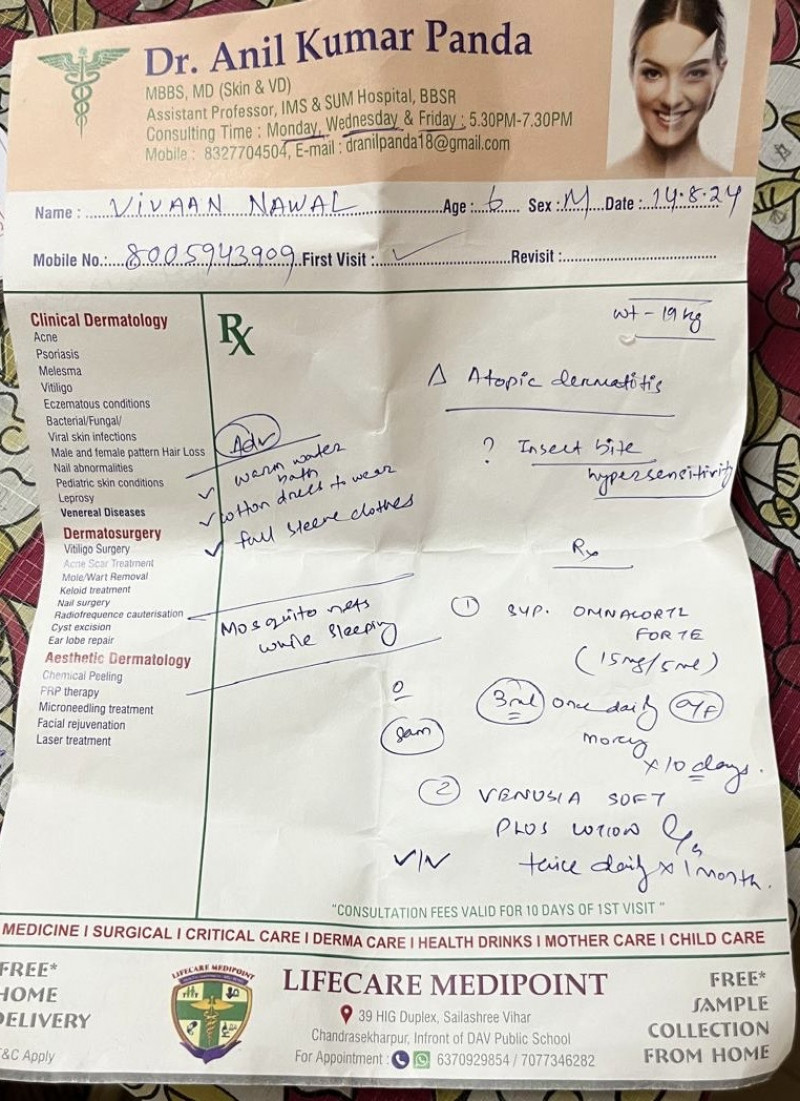 Dr. Anil Kumar Panda
MBBS, MD (Skin & VD)
Assistant Professor, IMS & SUM Hospital, BBSR
Consulting Time : Monday, Wednesday & Friday : 5.30PM-7.30PM
Mobile : 8327704504, E-mail : dranilpanda18@gmail.com
Name : VIVAAN NAWAL Age : 6 Sex : M Date : 14.8.24
Mobile No.: 8005943909 First Visit : ✓ Revisit :
Rx
wt - 19 kg
Δ Atopic dermatitis
? Insect bite
hypersensitivity
Clinical Dermatology
Acne
Psoriasis
Melesma
Vitiligo
Eczematous conditions
Bacterial/Fungal/
Viral skin infections
Male and female pattern Hair Loss
Nail abnormalities
Pediatric skin conditions
Leprosy
Venereal Diseases
Dermatosurgery
Vitiligo Surgery
Acne Scar Treatment
Mole/Wart Removal
Keloid treatment
Nail surgery
Radiofrequence cauterisation
Cyst excision
Ear lobe repair
Aesthetic Dermatology
Chemical Peeling
PRP therapy
Microneedling treatment
Facial rejuvenation
Laser treatment
Adv
✓ warm water
bath
✓ cotton dress to wear
✓ full sleeve clothes
Mosquito nets
while sleeping
Rx
① SYP. OMNACORTIL
FORTE
(15mg/5ml)
3ml once daily
8am
x 10 days.
② VENUSIA SOFT
PLUS LOTION
twice daily x 1 month.
"CONSULTATION FEES VALID FOR 10 DAYS OF 1ST VISIT "
MEDICINE I SURGICAL I CRITICAL CARE I DERMA CARE I HEALTH DRINKS I MOTHER CARE I CHILD CARE
FREE*
HOME
DELIVERY
&C Apply
LIFECARE MEDIPOINT
LIFECARE MEDIPOINT
39 HIG Duplex, Sailashree Vihar
Chandrasekharpur, Infront of DAV Public School
For Appointment : 6370929854 / 7077346282
FREE*
SAMPLE
COLLECTION
FROM HOME